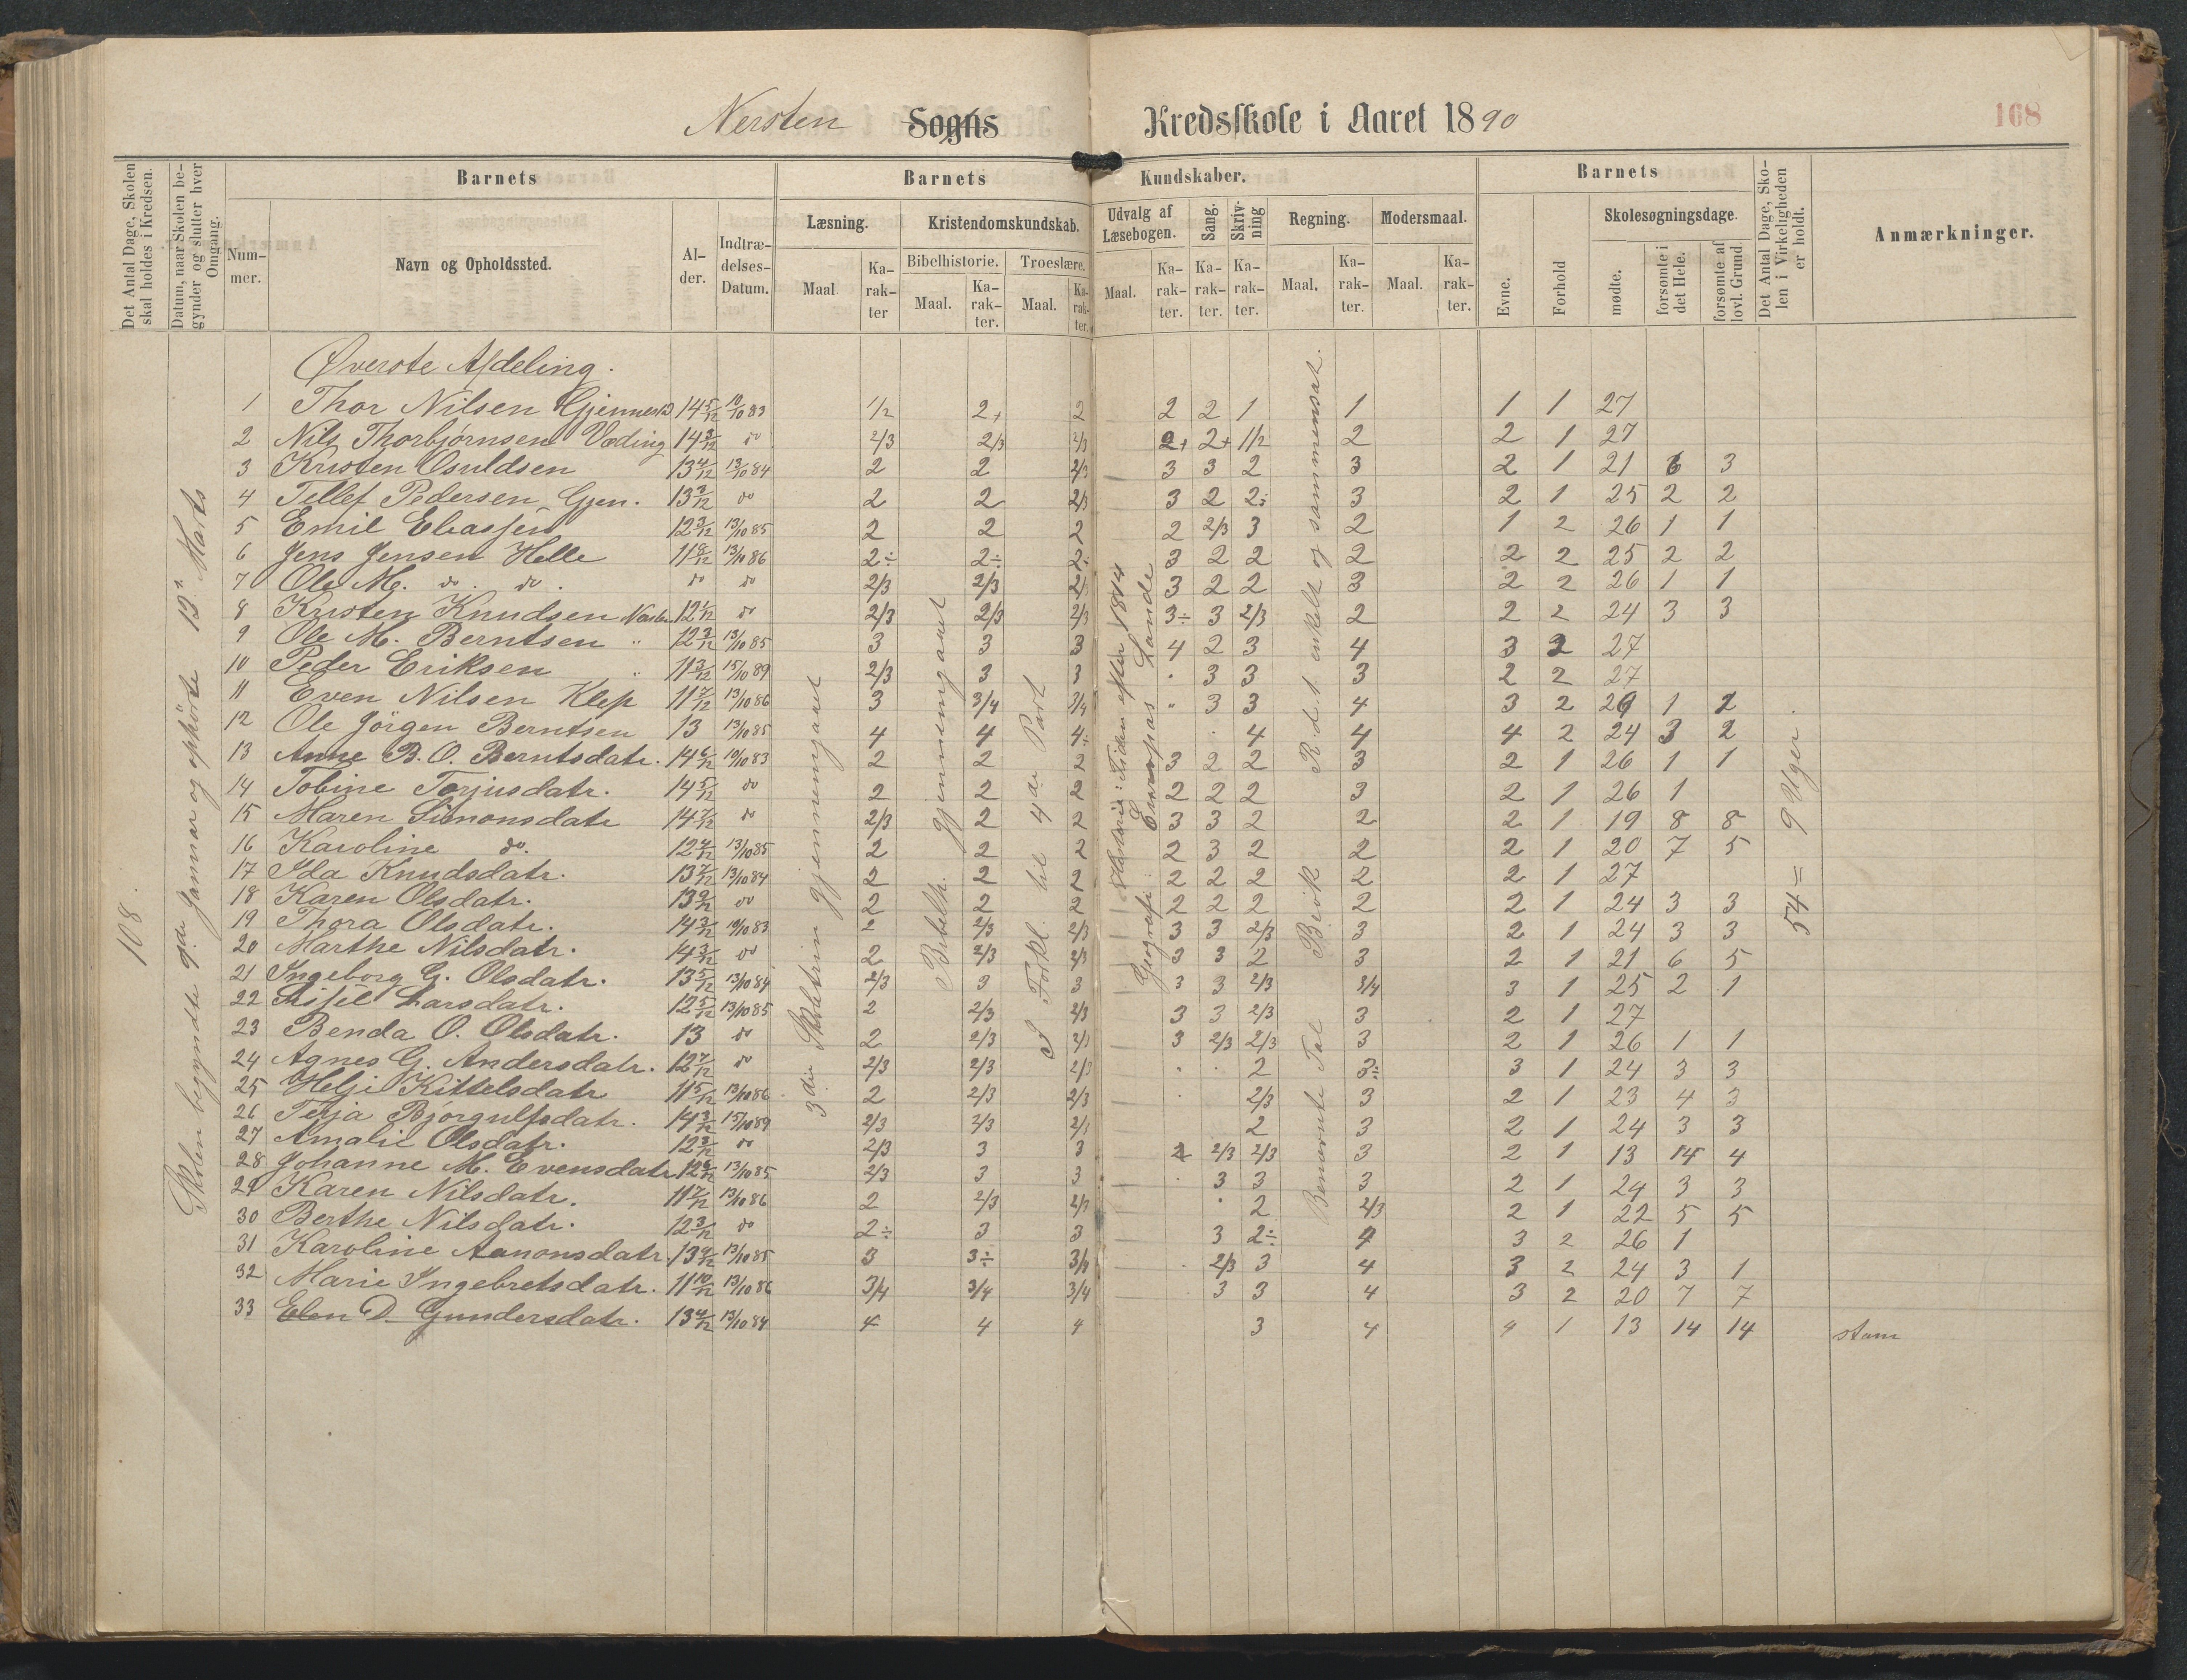 Nersten Sogns Kredsskole i Aaret 1890
168
Det Antal Dage, Skolen skal holdes i Kredsen.
Datum, naar Skolen begynder og slutter hver Omgang.
Barnets
Nummer.
Navn og Opholdssted.
Alder.
Indtrædelses-Datum.
Barnets Kundskaber.
Læsning.
Maal
Karakter
Kristendomskundskab.
Bibelhistorie.
Maal.
Karakter.
Troeslære.
Maal.
Karakter.
Udvalg af Læsebogen.
Maal.
Karakter.
Sang.
Karakter.
Skrivning
Karakter.
Regning.
Maal.
Karakter.
Modersmaal.
Maal.
Karakter.
Barnets
Evne.
Forhold
Skolesøgningsdage.
mødte.
forsømte i det Hele.
forsømte af lovl. Grund
Det Antal Dage, Skolen i Virkeligheden er holdt.
Anmærkninger.
108.
Skolen begyndte 9de Januar og ophörte 13n Marts
3die Skoletrin gjennemgaaet
Bibelh. gjennemgaaet
Forkl. til 4de Part
Historie: Tiden efter 1814
Geografi: Europas Lande
Benævnte Tal Brök R.d.t. enkelt og sammensat.
54 = 9 Uger
Øverste Afdeling.
1 Thor Nilsen Gjennes 14 5/12 10/10 83 1/2 2+ 2 2 2 1 1 1 1 27
2 Nils Thorbjørnsen Væding 14 3/12 do 2/3 2/3 2/3 2+ 2+ 1/2 2 2 1 27
3 Kristen Osuldsen 13 4/12 13/10 84 2 2 2/3 3 3 2 3 2 1 21 6 3
4 Tellef Pedersen Gjen. 13 3/12 do 2 2 2/3 3 2 2÷ 3 2 1 25 2 2
5 Emil Eliassen 12 3/12 13/10 85 2 2 2 2 2/3 3 2 1 2 26 1 1
6 Jens Jensen Helle 11 8/12 13/10 86 2÷ 2÷ 2÷ 3 2 2 2 2 2 25 2 2
7 Ole M. do. do. do do 2/3 2/3 2/3 3 2 2 3 2 2 26 1 1
8 Kristen Knudsen Nersten 12 1/12 do 2/3 2/3 2/3 3÷ 3 2/3 2 2 2 24 3 3
9 Ole M. Berntsen " 12 3/12 13/10 85 3 3 3 4 2 3 4 3 2 27
10 Peder Eriksen " 11 3/12 15/10 89 2/3 3 3 . 3 3 3 2 2 27
11 Even Nilsen Klep 11 7/12 13/10 86 3 3/4 3/4 " 3 3 4 3 2 26 1 1
12 Ole Jörgen Berntsen 13 13/10 85 4 4 4÷ . 4 4 4 2 24 3 2
13 Anne B. O. Berntsdatr. 14 6/12 10/10 83 2 2 2 3 2 2 3 2 1 26 1 1
14 Tobine Torjusdatr. 14 5/12 do 2 2 2 2 2 2 3 2 1 26 1
15 Maren Simonsdatr 14 7/12 do 2/3 2 2 3 3 2 2 2 1 19 8 8
16 Karoline do. 12 4/12 13/10 85 2 2 2 2 3 2 2 2 1 20 7 5
17 Ida Knudsdatr. 13 7/12 13/10 84 2 2 2 2 2 2 2 2 1 27
18 Karen Olsdatr. 13 9/12 do 2 2 2 2 2 2 2 2 1 24 3 3
19 Thora Olsdatr. 14 3/12 10/10 83 2 2/3 2/3 3 3 2/3 3 2 1 24 3 3
20 Marthe Nilsdatr. 14 3/12 do 2 2/3 2/3 3 3 2 3 2 1 21 6 5
21 Ingeborg G. Olsdatr. 13 5/12 13/10 84 2/3 3 3 3 3 2/3 3/4 3 1 25 2 1
22 Sisjel Larsdatr. 12 5/12 13/10 85 2 2/3 2/3 3 3 2/3 3 2 1 27
23 Benda O. Olsdatr. 13 do 2 2/3 2/3 3 2/3 2/3 3 2 1 26 1 1
24 Agnes G. Andersdatr. 12 7/12 do 2/3 2/3 2/3 . . 2 3÷ 3 1 24 3 3
25 Helji Kittelsdatr 11 5/12 13/10 86 2 2/3 2/3 . 2/3 3 2 1 23 4 3
26 Terja Bjørgulfsdatr. 14 3/12 15/10 89 2/3 2/3 2/3 2 3 2 1 24 3 3
27 Amalie Olsdatr. 12 3/12 do 2/3 3 3 2 2/3 2/3 3 2 1 13 14 4
28 Johanne M. Evensdatr 12 6/12 13/10 85 2/3 3 3 . 3 3 3 2 1 24 3 3
29 Karen Nilsdatr. 11 7/12 13/10 86 2 2/3 2/3 . 2 2/3 2 1 22 5 5
30 Berthe Nilsdatr. 12 3/12 do 2÷ 3 3 3 2÷ 4 3 2 26 1
31 Karoline Aanonsdatr. 13 9/12 13/10 85 3 3÷ 3/4 . 2/3 3 4 3 2 24 3 1
32 Marie Ingebretsdatr. 11 10/12 13/10 86 3/4 3/4 3/4 3 3 4 3 2 20 7 7
33 Elen D. Gundersdatr. 13 4/12 13/10 84 4 4 4 3 4 4 1 13 14 14 stam